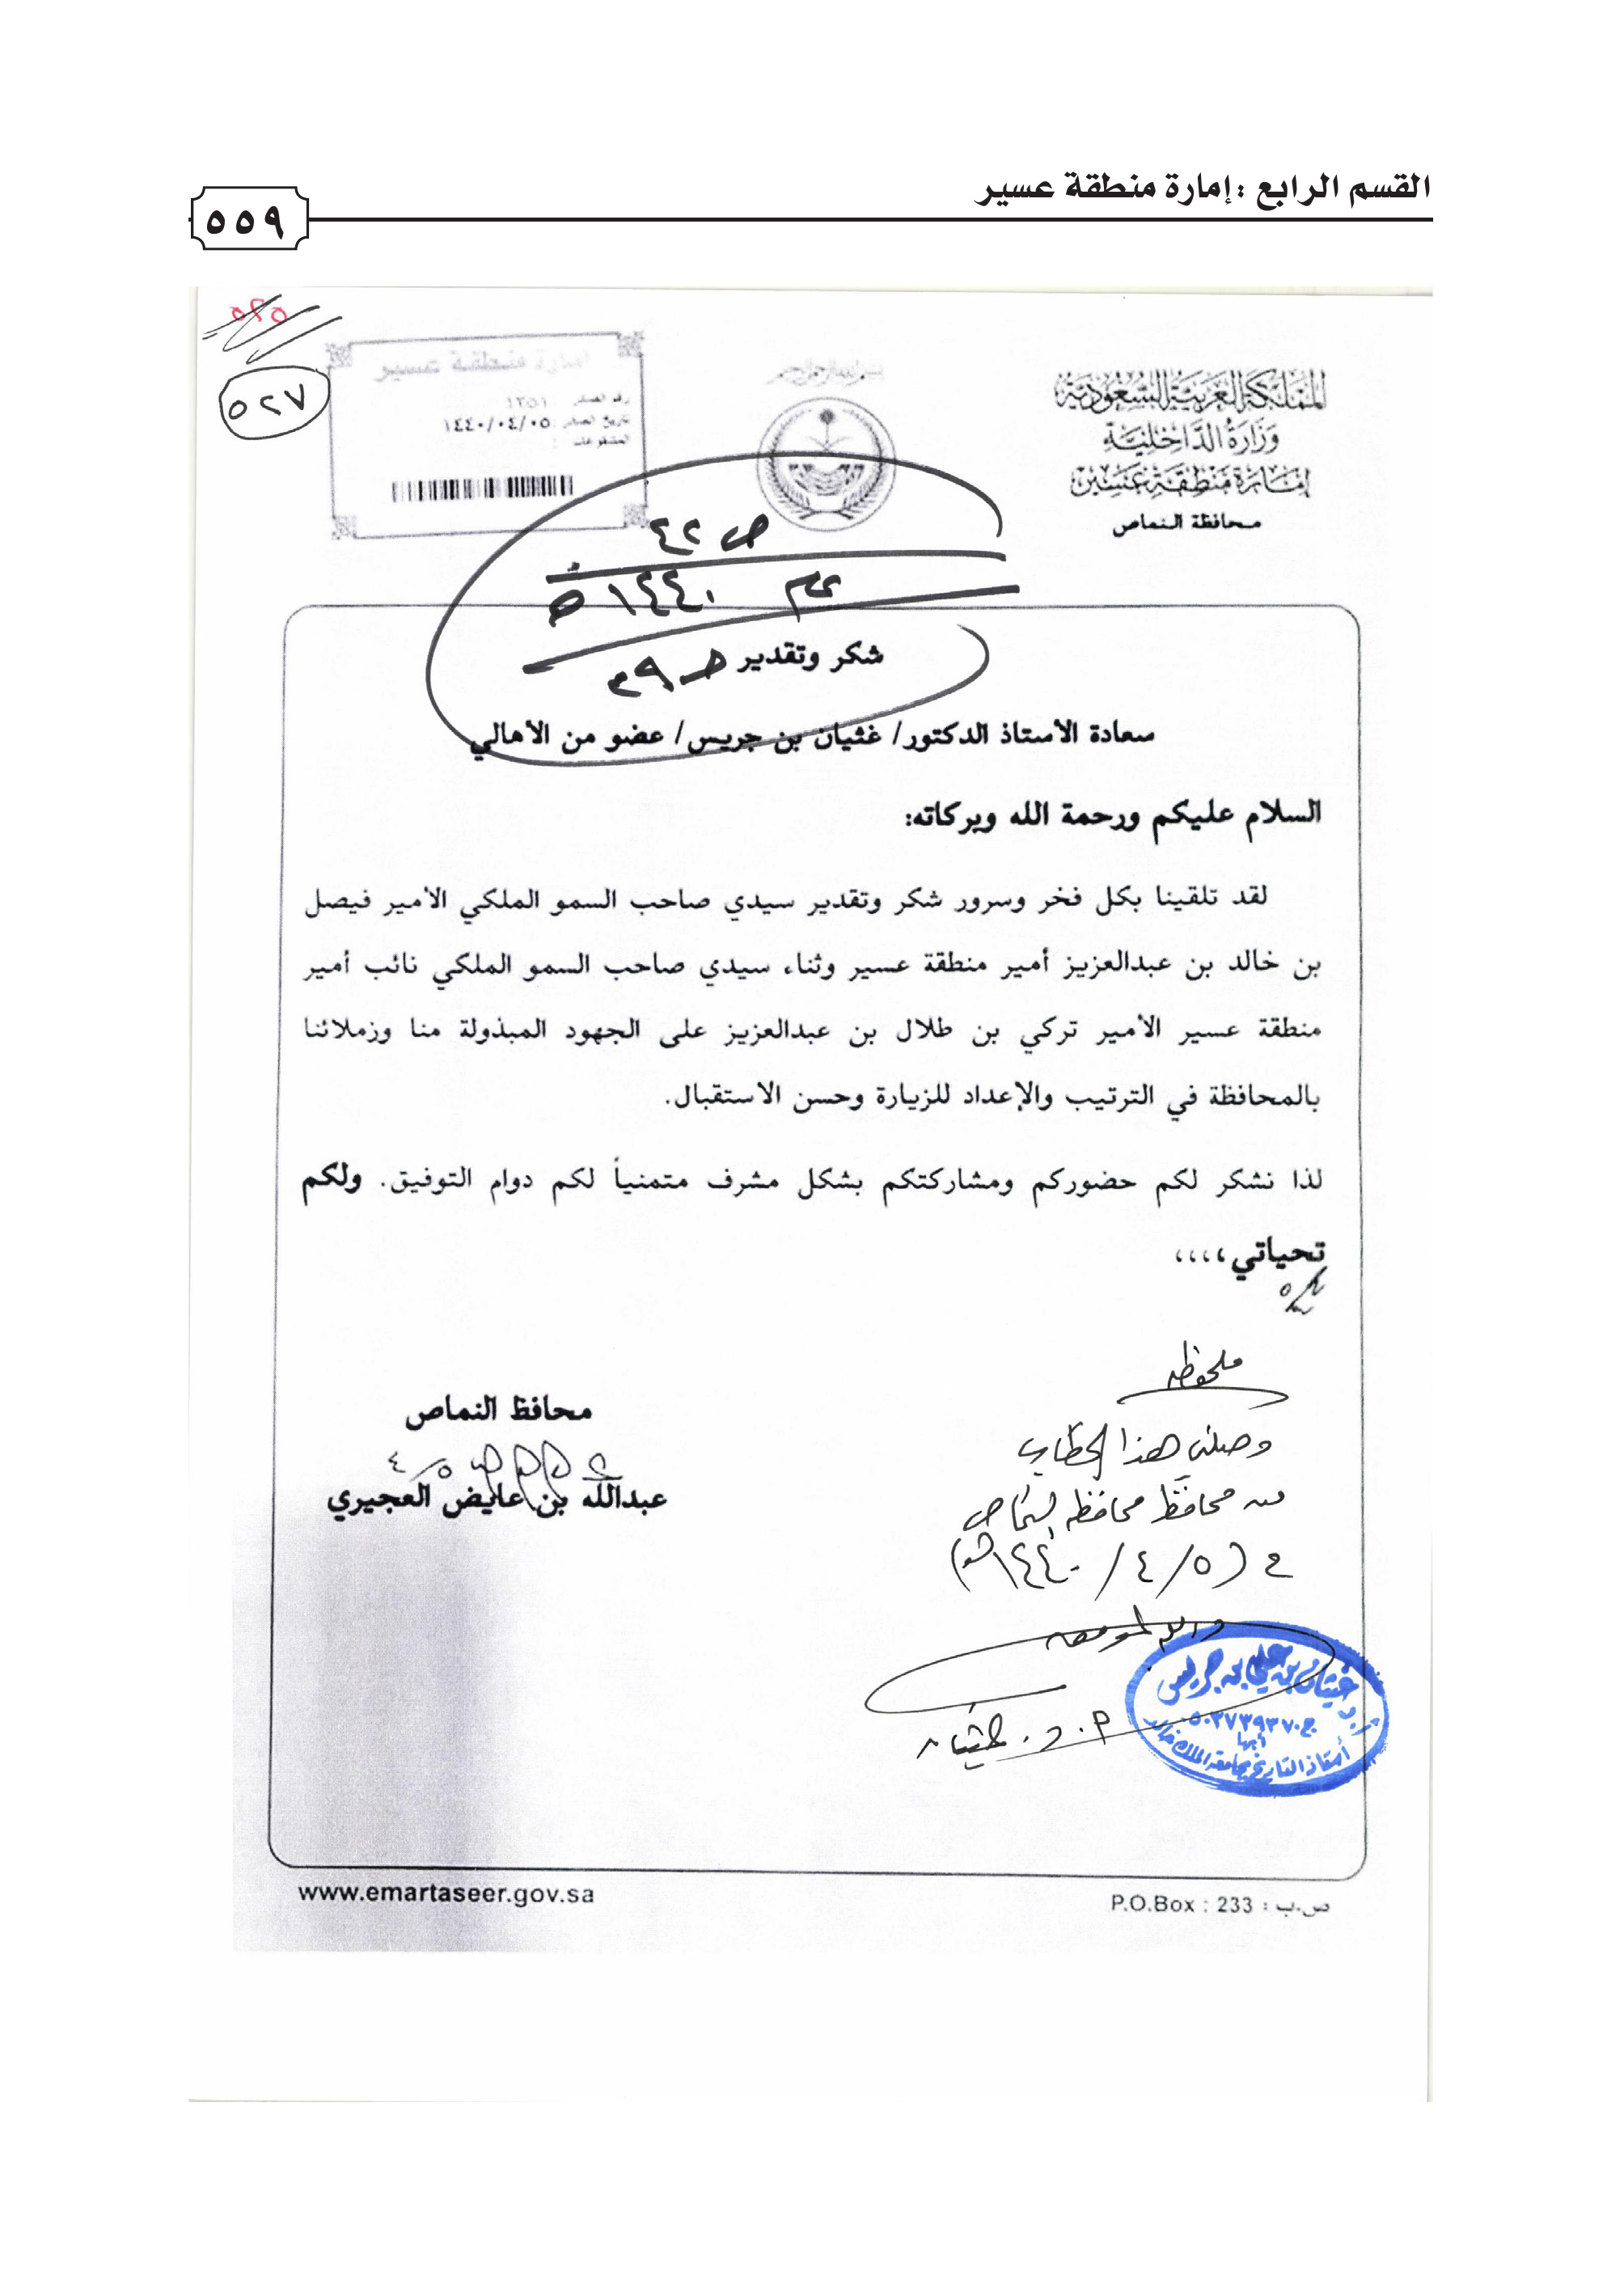 القسم الرابع : إمارة منطقة عسير
٥٥٩
٥٢٧
المملكة العربية السعودية
وزارة الداخلية
إمارة منطقة عسير
محافظة النماص
بسم الله الرحمن الرحيم
إمارة منطقة عسير
رقم الصادر : ١٢٥١
تاريخ الصادر : ١٤٤٠/٠٤/٠٥
المشفوعات :
ص ٤٢
١٤٤٠هـ
ص ٣٩
شكر وتقدير
سعادة الأستاذ الدكتور/ غثيان بن جريس/ عضو من الأهالي
السلام عليكم ورحمة الله وبركاته:
لقد تلقينا بكل فخر وسرور شكر وتقدير سيدي صاحب السمو الملكي الأمير فيصل
بن خالد بن عبدالعزيز أمير منطقة عسير وثناء سيدي صاحب السمو الملكي نائب أمير
منطقة عسير الأمير تركي بن طلال بن عبدالعزيز على الجهود المبذولة منا وزملائنا
بالمحافظة في الترتيب والإعداد للزيارة وحسن الاستقبال.
لذا نشكر لكم حضوركم ومشاركتكم بشكل مشرف متمنياً لكم دوام التوفيق. ولكم
تحياتي،،،،
محافظ النماص
٤/٥
عبدالله بن عايض العجيري
ملحوظه
وصلني هذا الخطاب
من محافظ محافظه النماص
في (٥/٤/١٤٤٠هـ)
والله الموفق
أ.د. غيثان
غيثان بن علي بن جريس
ج ٠٥٠٢٧٣٩٣٧٠
أبها
أستاذ التاريخ بجامعة الملك خالد
www.emartaseer.gov.sa
P.O.Box : 233 : ص.ب